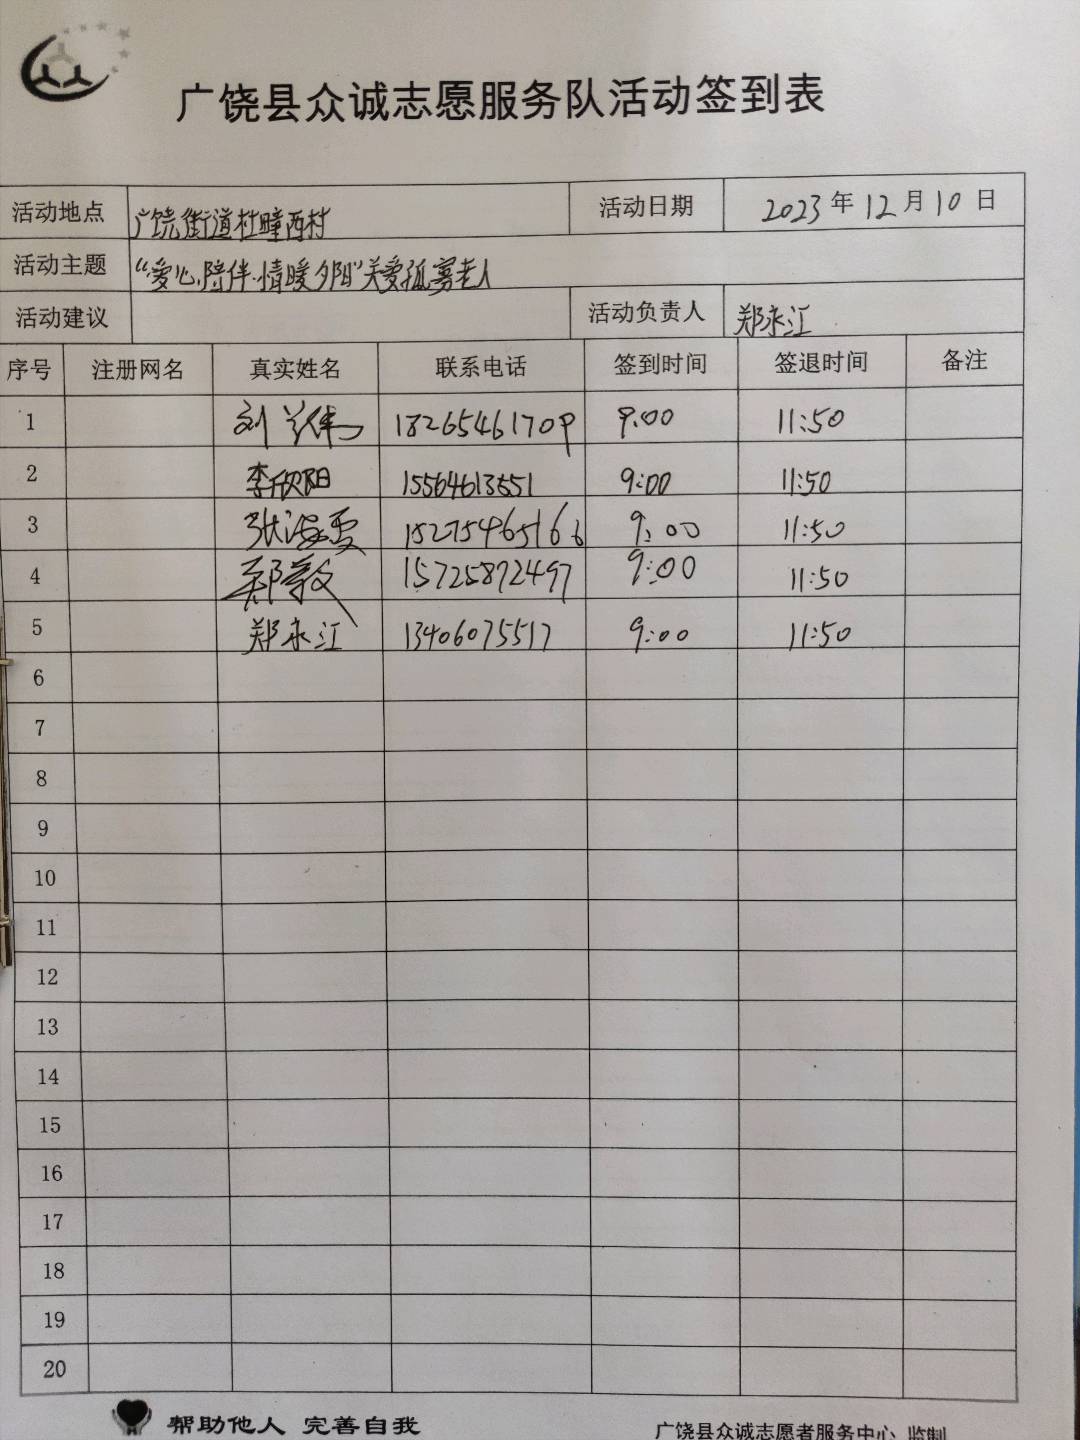 广饶县众诚志愿服务队活动签到表
活动地点 广饶街道杜疃西村 活动日期 2023年12月10日
活动主题 “爱心陪伴·情暖夕阳”关爱孤寡老人
活动建议 活动负责人 郑永江
序号 注册网名 真实姓名 联系电话 签到时间 签退时间 备注
1 刘兰伟 18265461709 9:00 11:50
2 李欣阳 15564613551 9:00 11:50
3 张 15275465166 9:00 11:50
4 郑敦 15725872497 9:00 11:50
5 郑永江 13406075517 9:00 11:50
6
7
8
9
10
11
12
13
14
15
16
17
18
19
20
帮助他人 完善自我 广饶县众诚志愿者服务中心 监制